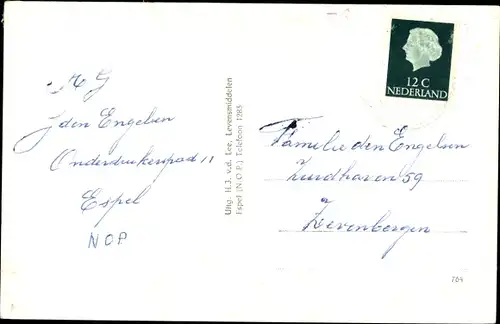 H G
J den Engelsen
Onderduikerspad 11
Espel
NOP
Uitg. H.J. v.d. Lee, Levensmiddelen
Espel (N.O.P.) Telefoon 1285
12 C
NEDERLAND
Familie den Engelsen
Zuidhaven 59
Zevenbergen
764